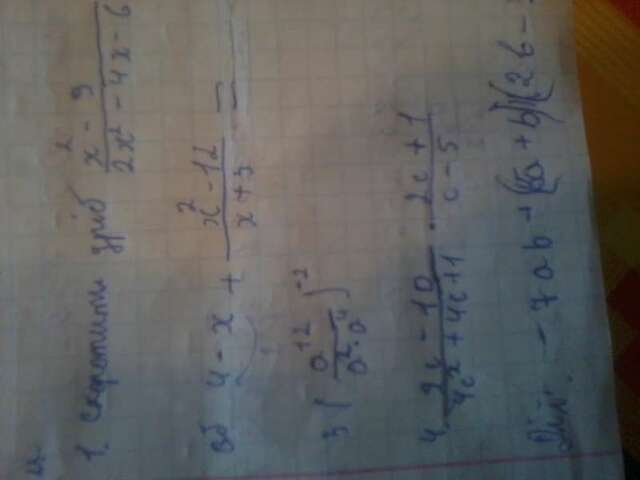 1. Скоротити дріб (x² - 9)/(2x² - 4x - 6
4 - x + (x² - 12)/(x + 3) =
3 (a^12/(a² · a^4))^-2
4. (2c - 10)/(4c² + 4c + 1) · (2c + 1)/(c - 5)
- 7ab + (5a + b)(2b -